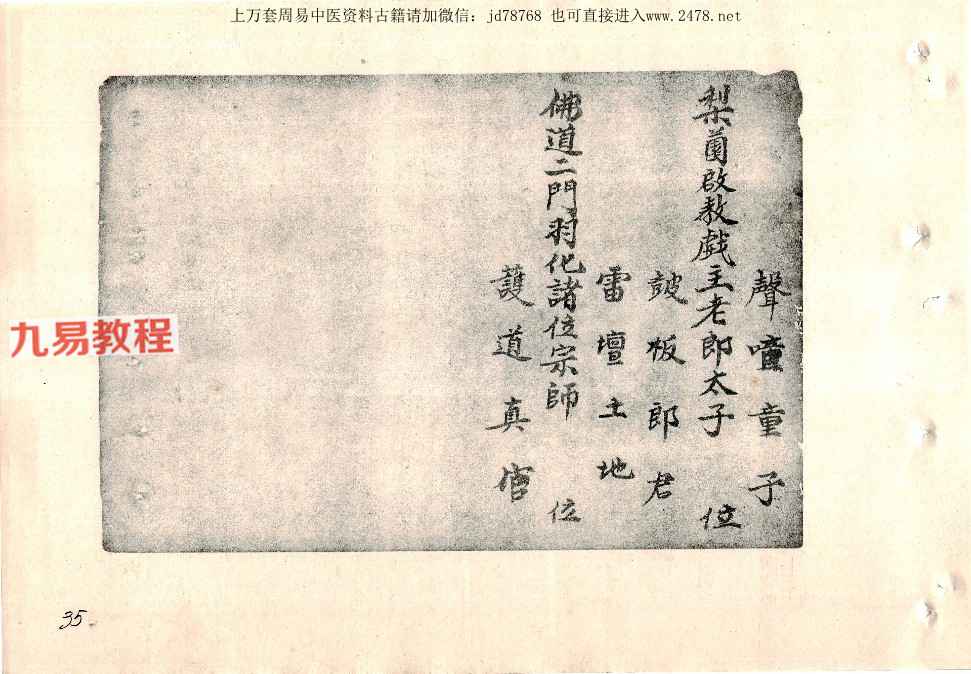 上万套周易中医资料古籍请加微信：jd78768 也可直接进入www.2478.net
聲 童子
梨園啟教戯主老郎太子 位
皷板郎君
雷壇土地
佛道二門羽化諸位宗師 位
護道真官
九易教程
35